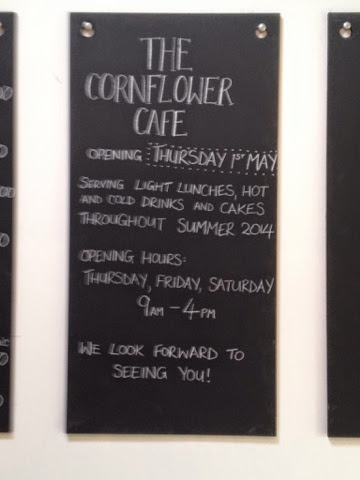 THE
CORNFLOWER
CAFE
OPENING THURSDAY 1ST MAY
SERVING LIGHT LUNCHES, HOT
AND COLD DRINKS AND CAKES
THROUGHOUT SUMMER 2014
OPENING HOURS:
THURSDAY, FRIDAY, SATURDAY
9AM - 4PM
WE LOOK FORWARD TO
SEEING YOU!